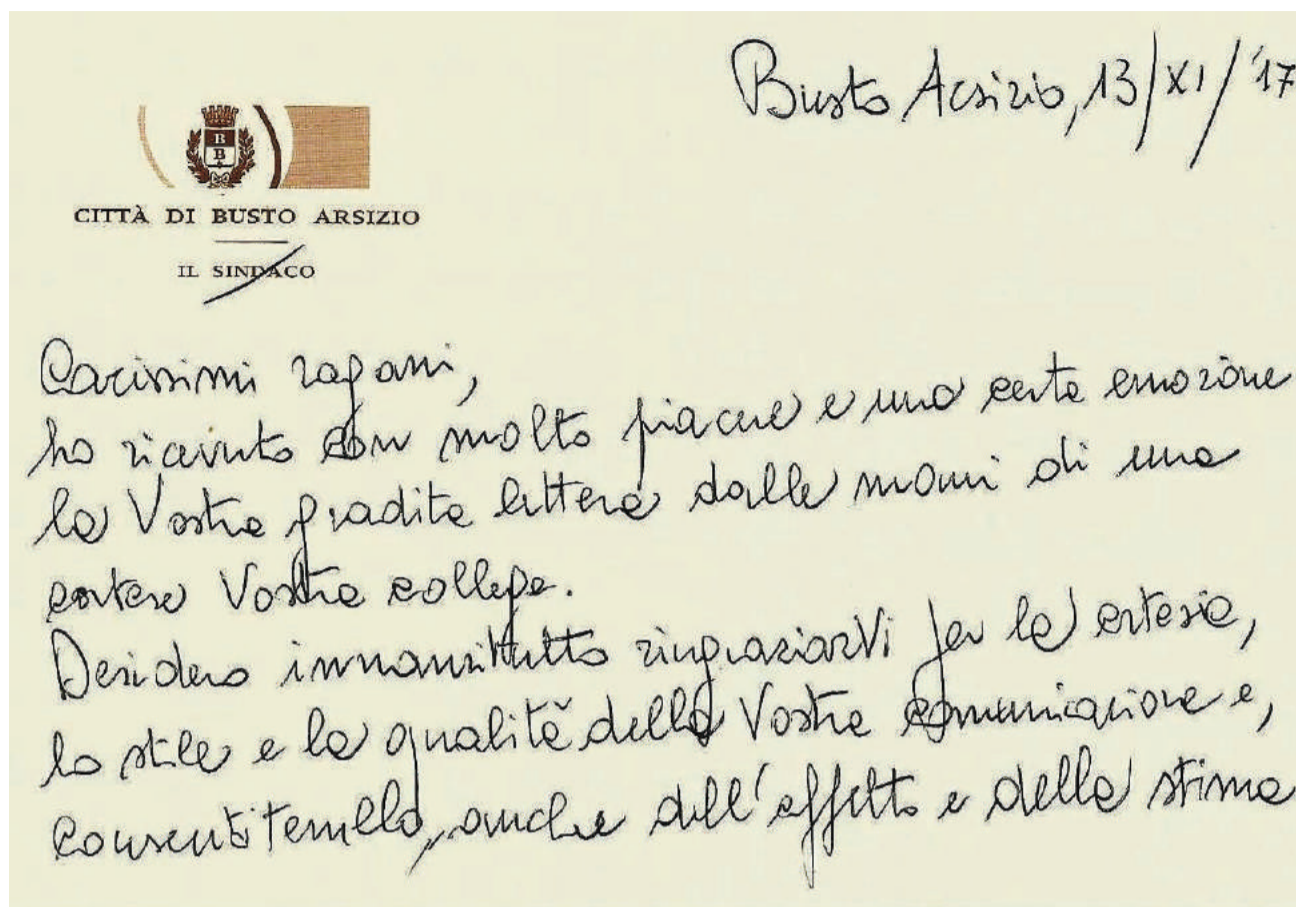 Busto Arsizio, 13/XI/'17
B
B
CITTÀ DI BUSTO ARSIZIO
IL SINDACO
Carissimi ragazzi,
ho ricevuto con molto piacere e una certa emozione
la Vostra gradita lettera dalle mani di una
cortese Vostra collega.
Desidero innanzitutto ringraziarVi per la cortesia,
lo stile e la qualità della Vostra comunicazione e,
consentitemelo, anche dell'affetto e della stima